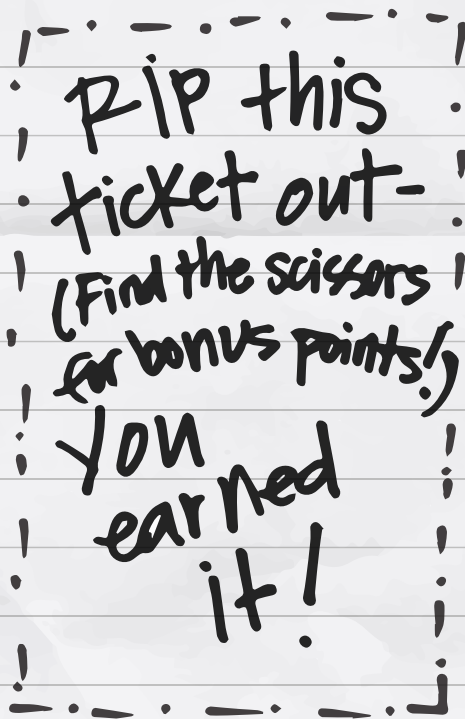 Rip this
ticket out-
(Find the scissors
for bonus points!)
You
earned
it!